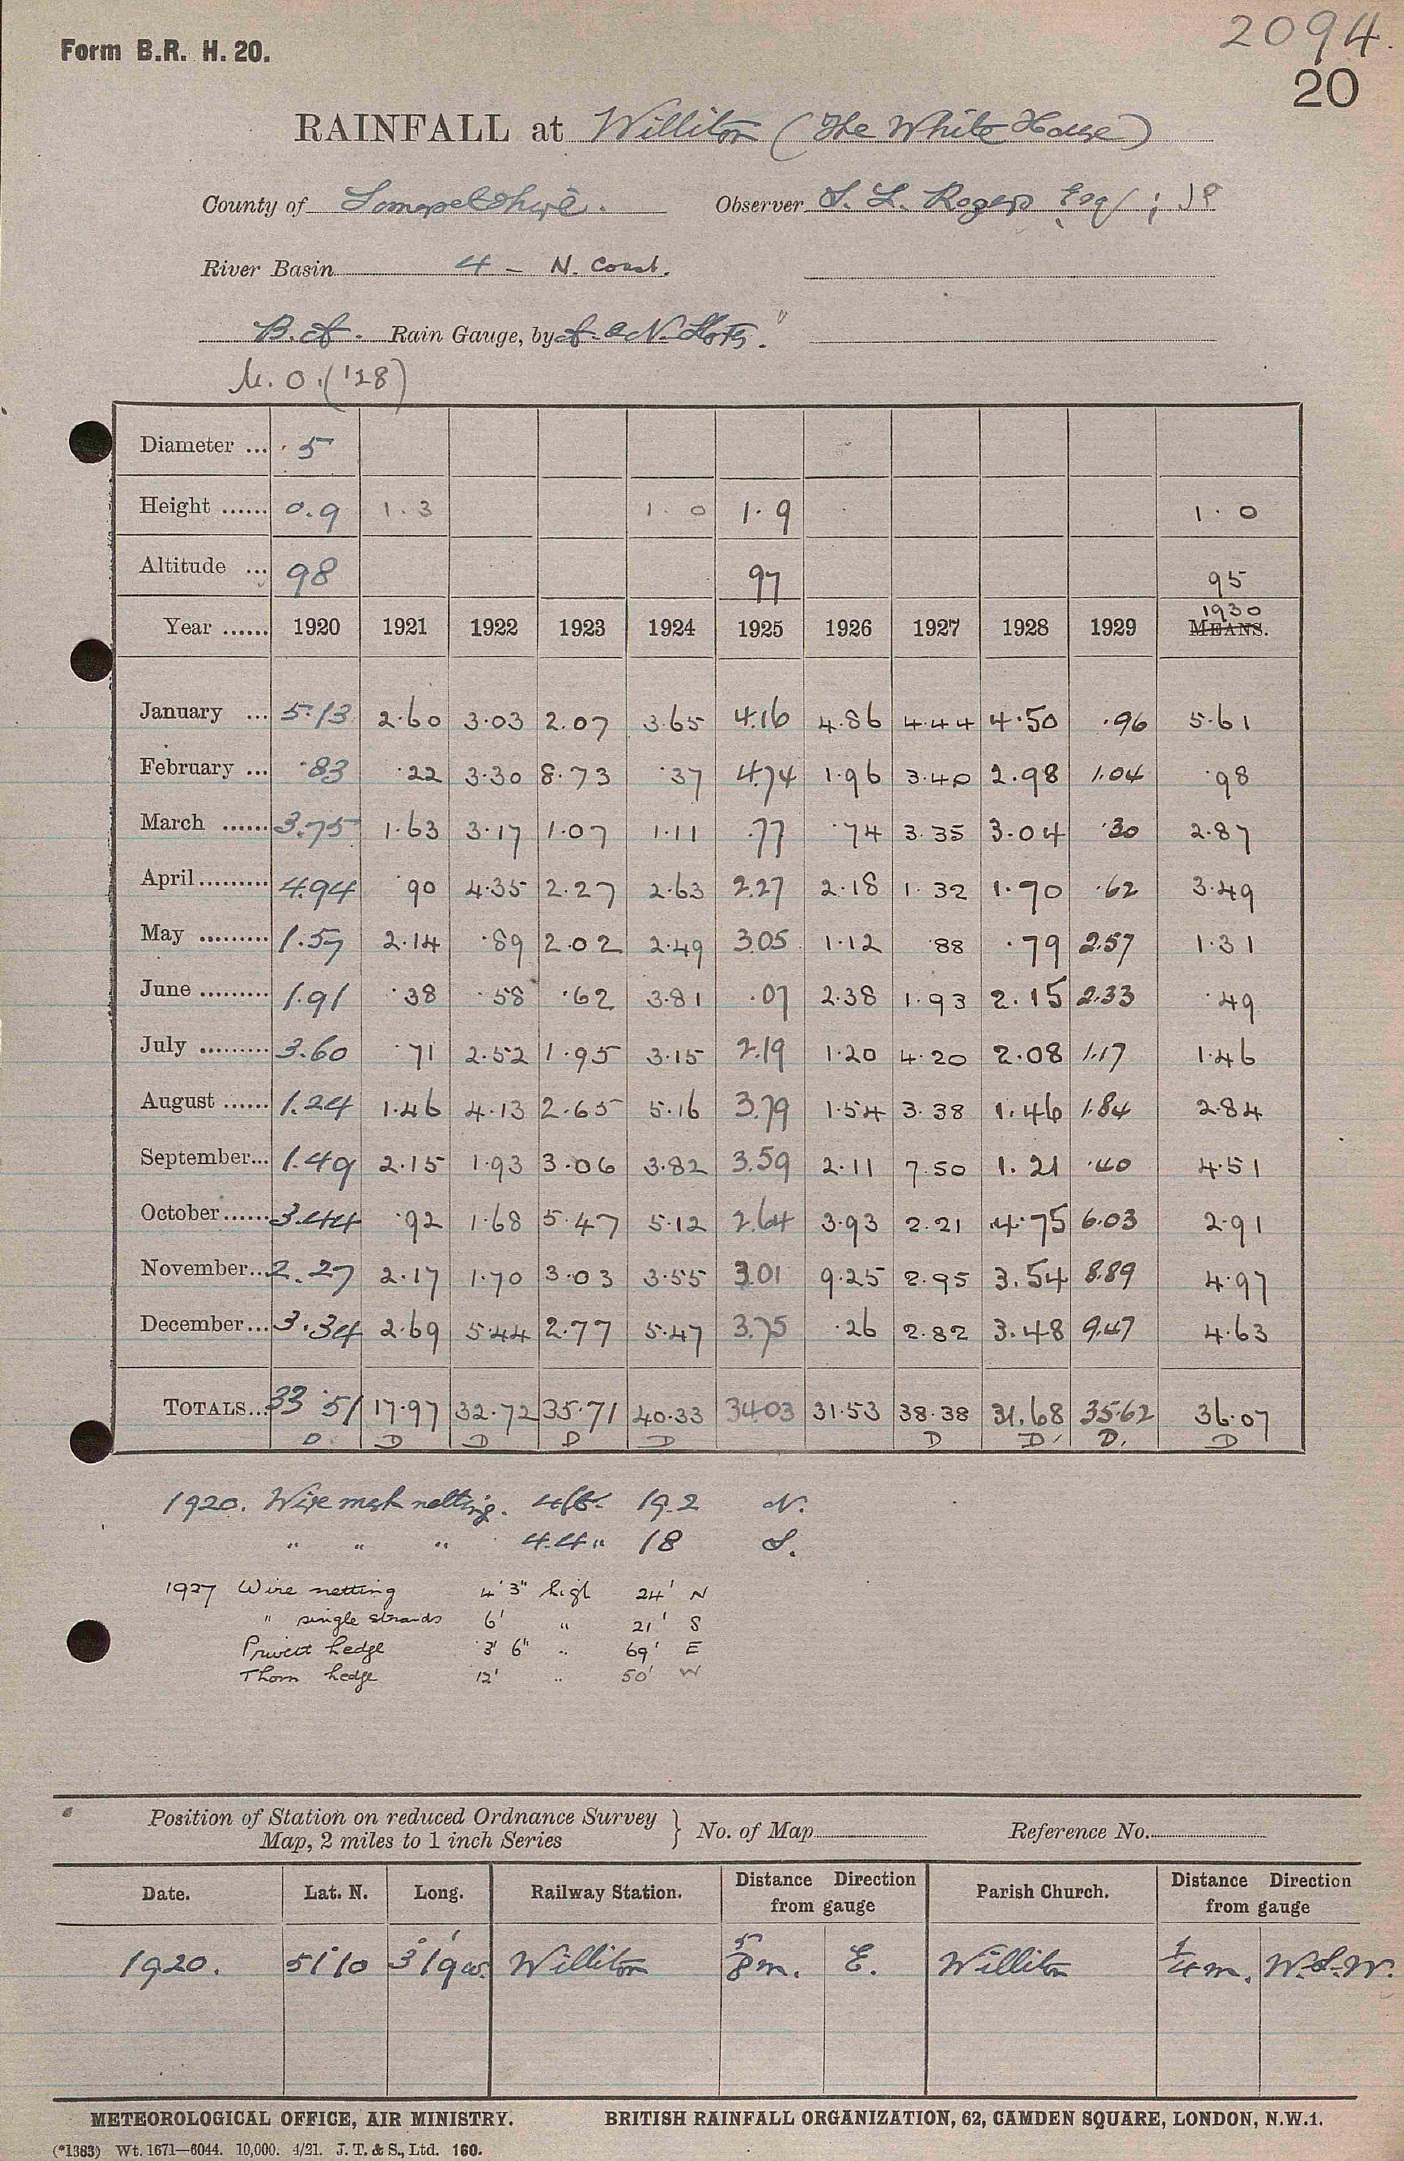 Form B.R. H. 20.
2094.
20
RAINFALL at Williton (The White House)
County of Somersetshire. Observer S. L. Rogers Esq; JP
River Basin 4 - N. Coast.
Rain Gauge, by
M.O. ('28)
Diameter ... 5
Height ...... 0.9 1.3 1.0 1.9 1.0
Altitude ... 98 97 95
Year ...... 1920 1921 1922 1923 1924 1925 1926 1927 1928 1929 1930 MEANS.
January ... 5.13 2.60 3.03 2.07 3.65 4.16 4.86 4.44 4.50 .96 5.61
February ... .83 .22 3.30 8.73 .37 4.74 1.96 3.40 2.98 1.04 .98
March ...... 3.75 1.63 3.17 1.07 1.11 .77 .74 3.35 3.04 .30 2.87
April ......... 4.94 .90 4.35 2.27 2.63 2.27 2.18 1.32 1.70 .62 3.49
May ......... 1.57 2.14 .89 2.02 2.49 3.05 1.12 .88 .79 2.57 1.31
June ......... 1.91 .38 .58 .62 3.81 .07 2.38 1.93 2.15 2.33 .49
July ......... 3.60 .71 2.52 1.95 3.15 2.19 1.20 4.20 2.08 1.17 1.46
August ...... 1.24 1.46 4.13 2.65 5.16 3.79 1.54 3.38 1.46 1.84 2.84
September... 1.49 2.15 1.93 3.06 3.82 3.59 2.11 7.50 1.21 .40 4.51
October...... 3.44 .92 1.68 5.47 5.12 2.64 3.93 2.21 4.75 6.03 2.91
November... 2.27 2.17 1.70 3.03 3.55 3.01 9.25 2.95 3.54 8.89 4.97
December... 3.34 2.69 5.44 2.77 5.47 3.75 .26 2.82 3.48 9.47 4.63
TOTALS... 33.51 17.97 32.72 35.71 40.33 34.03 31.53 38.38 31.68 35.62 36.07
D D D D D D D D. D
1920. Wire mesh netting. 4 ft. 19.2 N.
" " " 4.4 " 18 S.
1927 Wire netting 4' 3" high 24' N
" single strands 6' " 21' S
Privett hedge 3' 6" " 69' E
Thorn hedge 12' " 50' W
Position of Station on reduced Ordnance Survey
Map, 2 miles to 1 inch Series } No. of Map Reference No.
Date. Lat. N. Long. Railway Station. Distance Direction from gauge Parish Church. Distance Direction from gauge
1920. 51°10 3°19' W. Williton 5/8 m. E. Williton 1/4 m. W.S.W.
METEOROLOGICAL OFFICE, AIR MINISTRY. BRITISH RAINFALL ORGANIZATION, 62, CAMDEN SQUARE, LONDON, N.W.1.
(*1383) Wt. 1671—6044. 10,000. 4/21. J. T. & S., Ltd. 160.